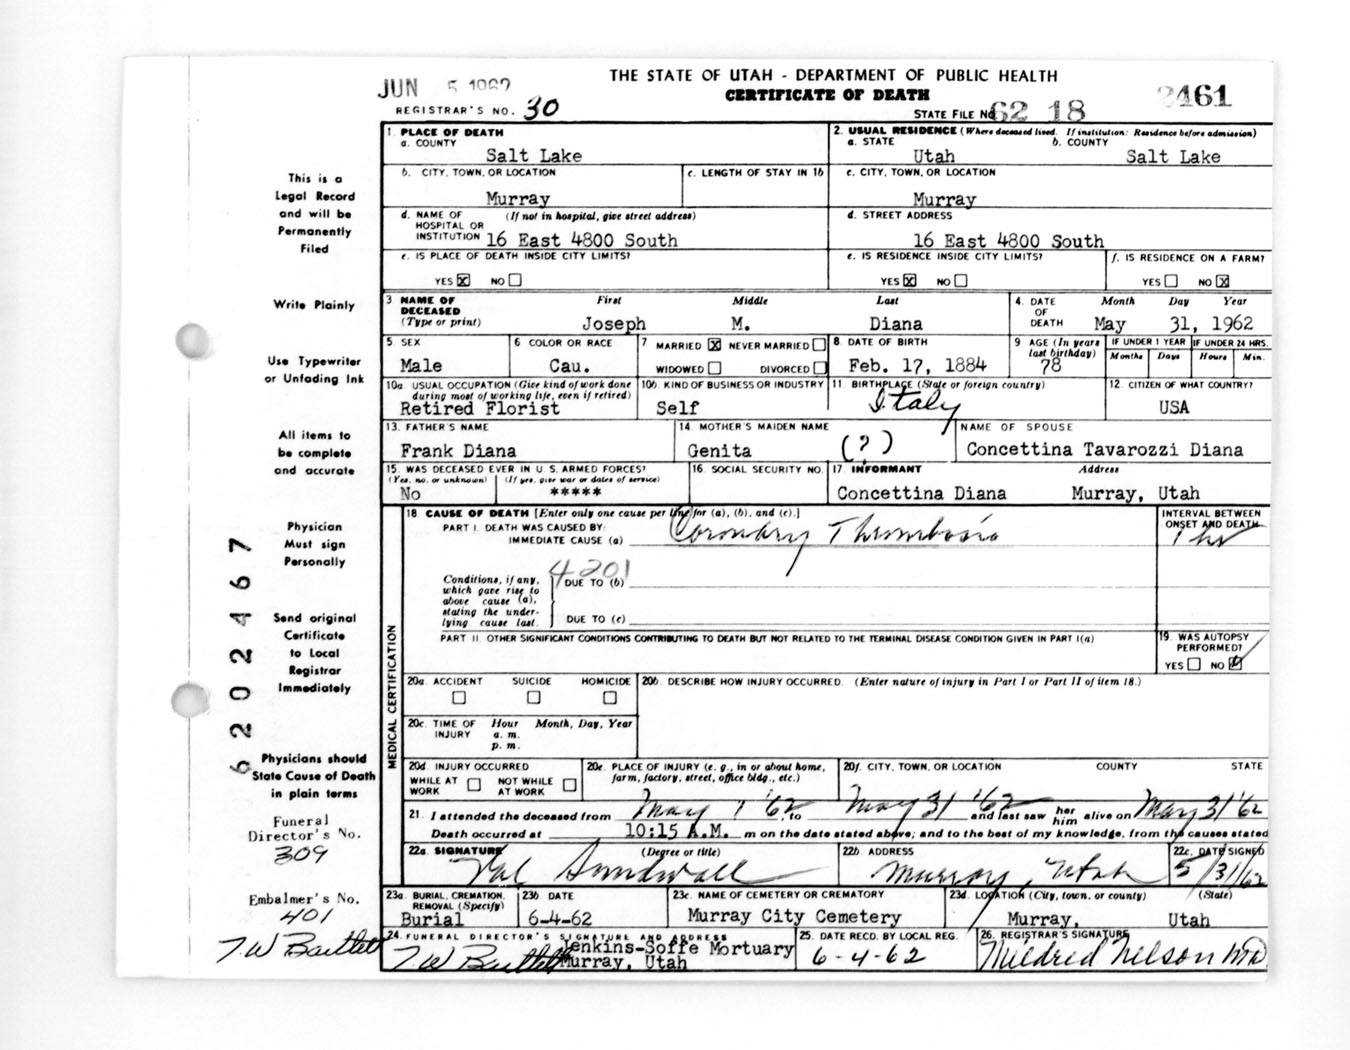 JUN 5 1962
THE STATE OF UTAH - DEPARTMENT OF PUBLIC HEALTH
CERTIFICATE OF DEATH
2461
REGISTRAR'S NO. 30
STATE FILE NO. 62 18
1. PLACE OF DEATH
a. COUNTY
Salt Lake
2. USUAL RESIDENCE (Where deceased lived. If institution: Residence before admission)
a. STATE b. COUNTY
Utah Salt Lake
b. CITY, TOWN, OR LOCATION
Murray
c. LENGTH OF STAY IN 1b
c. CITY, TOWN, OR LOCATION
Murray
d. NAME OF HOSPITAL OR INSTITUTION (If not in hospital, give street address)
16 East 4800 South
d. STREET ADDRESS
16 East 4800 South
e. IS PLACE OF DEATH INSIDE CITY LIMITS?
YES X NO
e. IS RESIDENCE INSIDE CITY LIMITS?
YES X NO
f. IS RESIDENCE ON A FARM?
YES NO X
3 NAME OF DECEASED (Type or print)
First Middle Last
Joseph M. Diana
4. DATE OF DEATH Month Day Year
May 31, 1962
5. SEX
Male
6 COLOR OR RACE
Cau.
7 MARRIED X NEVER MARRIED
WIDOWED DIVORCED
8. DATE OF BIRTH
Feb. 17, 1884
9 AGE (In years last birthday)
78
IF UNDER 1 YEAR
Months Days
IF UNDER 24 HRS.
Hours Min.
10a USUAL OCCUPATION (Give kind of work done during most of working life, even if retired)
Retired Florist
10b. KIND OF BUSINESS OR INDUSTRY
Self
11. BIRTHPLACE (State or foreign country)
Italy
12. CITIZEN OF WHAT COUNTRY?
USA
13. FATHER'S NAME
Frank Diana
14. MOTHER'S MAIDEN NAME
Genita (?)
NAME OF SPOUSE
Concettina Tavarozzi Diana
15. WAS DECEASED EVER IN U. S. ARMED FORCES?
(Yes, no, or unknown) (If yes, give war or dates of service)
No *****
16. SOCIAL SECURITY NO.
17. INFORMANT Address
Concettina Diana Murray, Utah
MEDICAL CERTIFICATION
18. CAUSE OF DEATH [Enter only one cause per line for (a), (b), and (c).]
PART I. DEATH WAS CAUSED BY:
IMMEDIATE CAUSE (a) Coronary Thrombosis
INTERVAL BETWEEN ONSET AND DEATH
1 hr
4201
Conditions, if any, which gave rise to above cause (a), stating the underlying cause last.
DUE TO (b)
DUE TO (c)
PART II. OTHER SIGNIFICANT CONDITIONS CONTRIBUTING TO DEATH BUT NOT RELATED TO THE TERMINAL DISEASE CONDITION GIVEN IN PART I(a)
19. WAS AUTOPSY PERFORMED?
YES NO
20a. ACCIDENT SUICIDE HOMICIDE
20b. DESCRIBE HOW INJURY OCCURRED. (Enter nature of injury in Part I or Part II of item 18.)
20c. TIME OF INJURY Hour Month, Day, Year
a. m.
p. m.
20d. INJURY OCCURRED
WHILE AT WORK NOT WHILE AT WORK
20e. PLACE OF INJURY (e. g., in or about home, farm, factory, street, office bldg., etc.)
20f. CITY, TOWN, OR LOCATION COUNTY STATE
21. I attended the deceased from May 1 '62, to May 31 '62 and last saw her him alive on May 31 '62
Death occurred at 10:15 A.M. m on the date stated above; and to the best of my knowledge, from the causes stated
22a. SIGNATURE (Degree or title)
Val Sundwall
22b. ADDRESS
Murray, Utah
22c. DATE SIGNED
5/31/62
23a. BURIAL, CREMATION, REMOVAL (Specify)
Burial
23b. DATE
6-4-62
23c. NAME OF CEMETERY OR CREMATORY
Murray City Cemetery
23d. LOCATION (City, town, or county) (State)
Murray, Utah
24. FUNERAL DIRECTOR'S SIGNATURE AND ADDRESS
T. W. Bartlett Jenkins-Soffe Mortuary
Murray, Utah
25. DATE RECD. BY LOCAL REG.
6-4-62
26. REGISTRAR'S SIGNATURE
Mildred Nelson
This is a
Legal Record
and will be
Permanently
Filed
Write Plainly
Use Typewriter
or Unfading Ink
All items to
be complete
and accurate
Physician
Must sign
Personally
Send original
Certificate
to Local
Registrar
Immediately
Physicians should
State Cause of Death
in plain terms
Funeral
Director's No.
309
Embalmer's No.
401
T. W. Bartlett
6202467